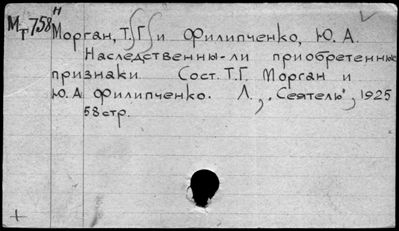 М/Т 758 н
Морган, Т.Г. и Филипченко, Ю.А.
Наследственны-ли приобретенные
признаки Сост. Т.Г. Морган и
Ю.А. Филипченко. Л., "Сеятель", 1925
58стр.